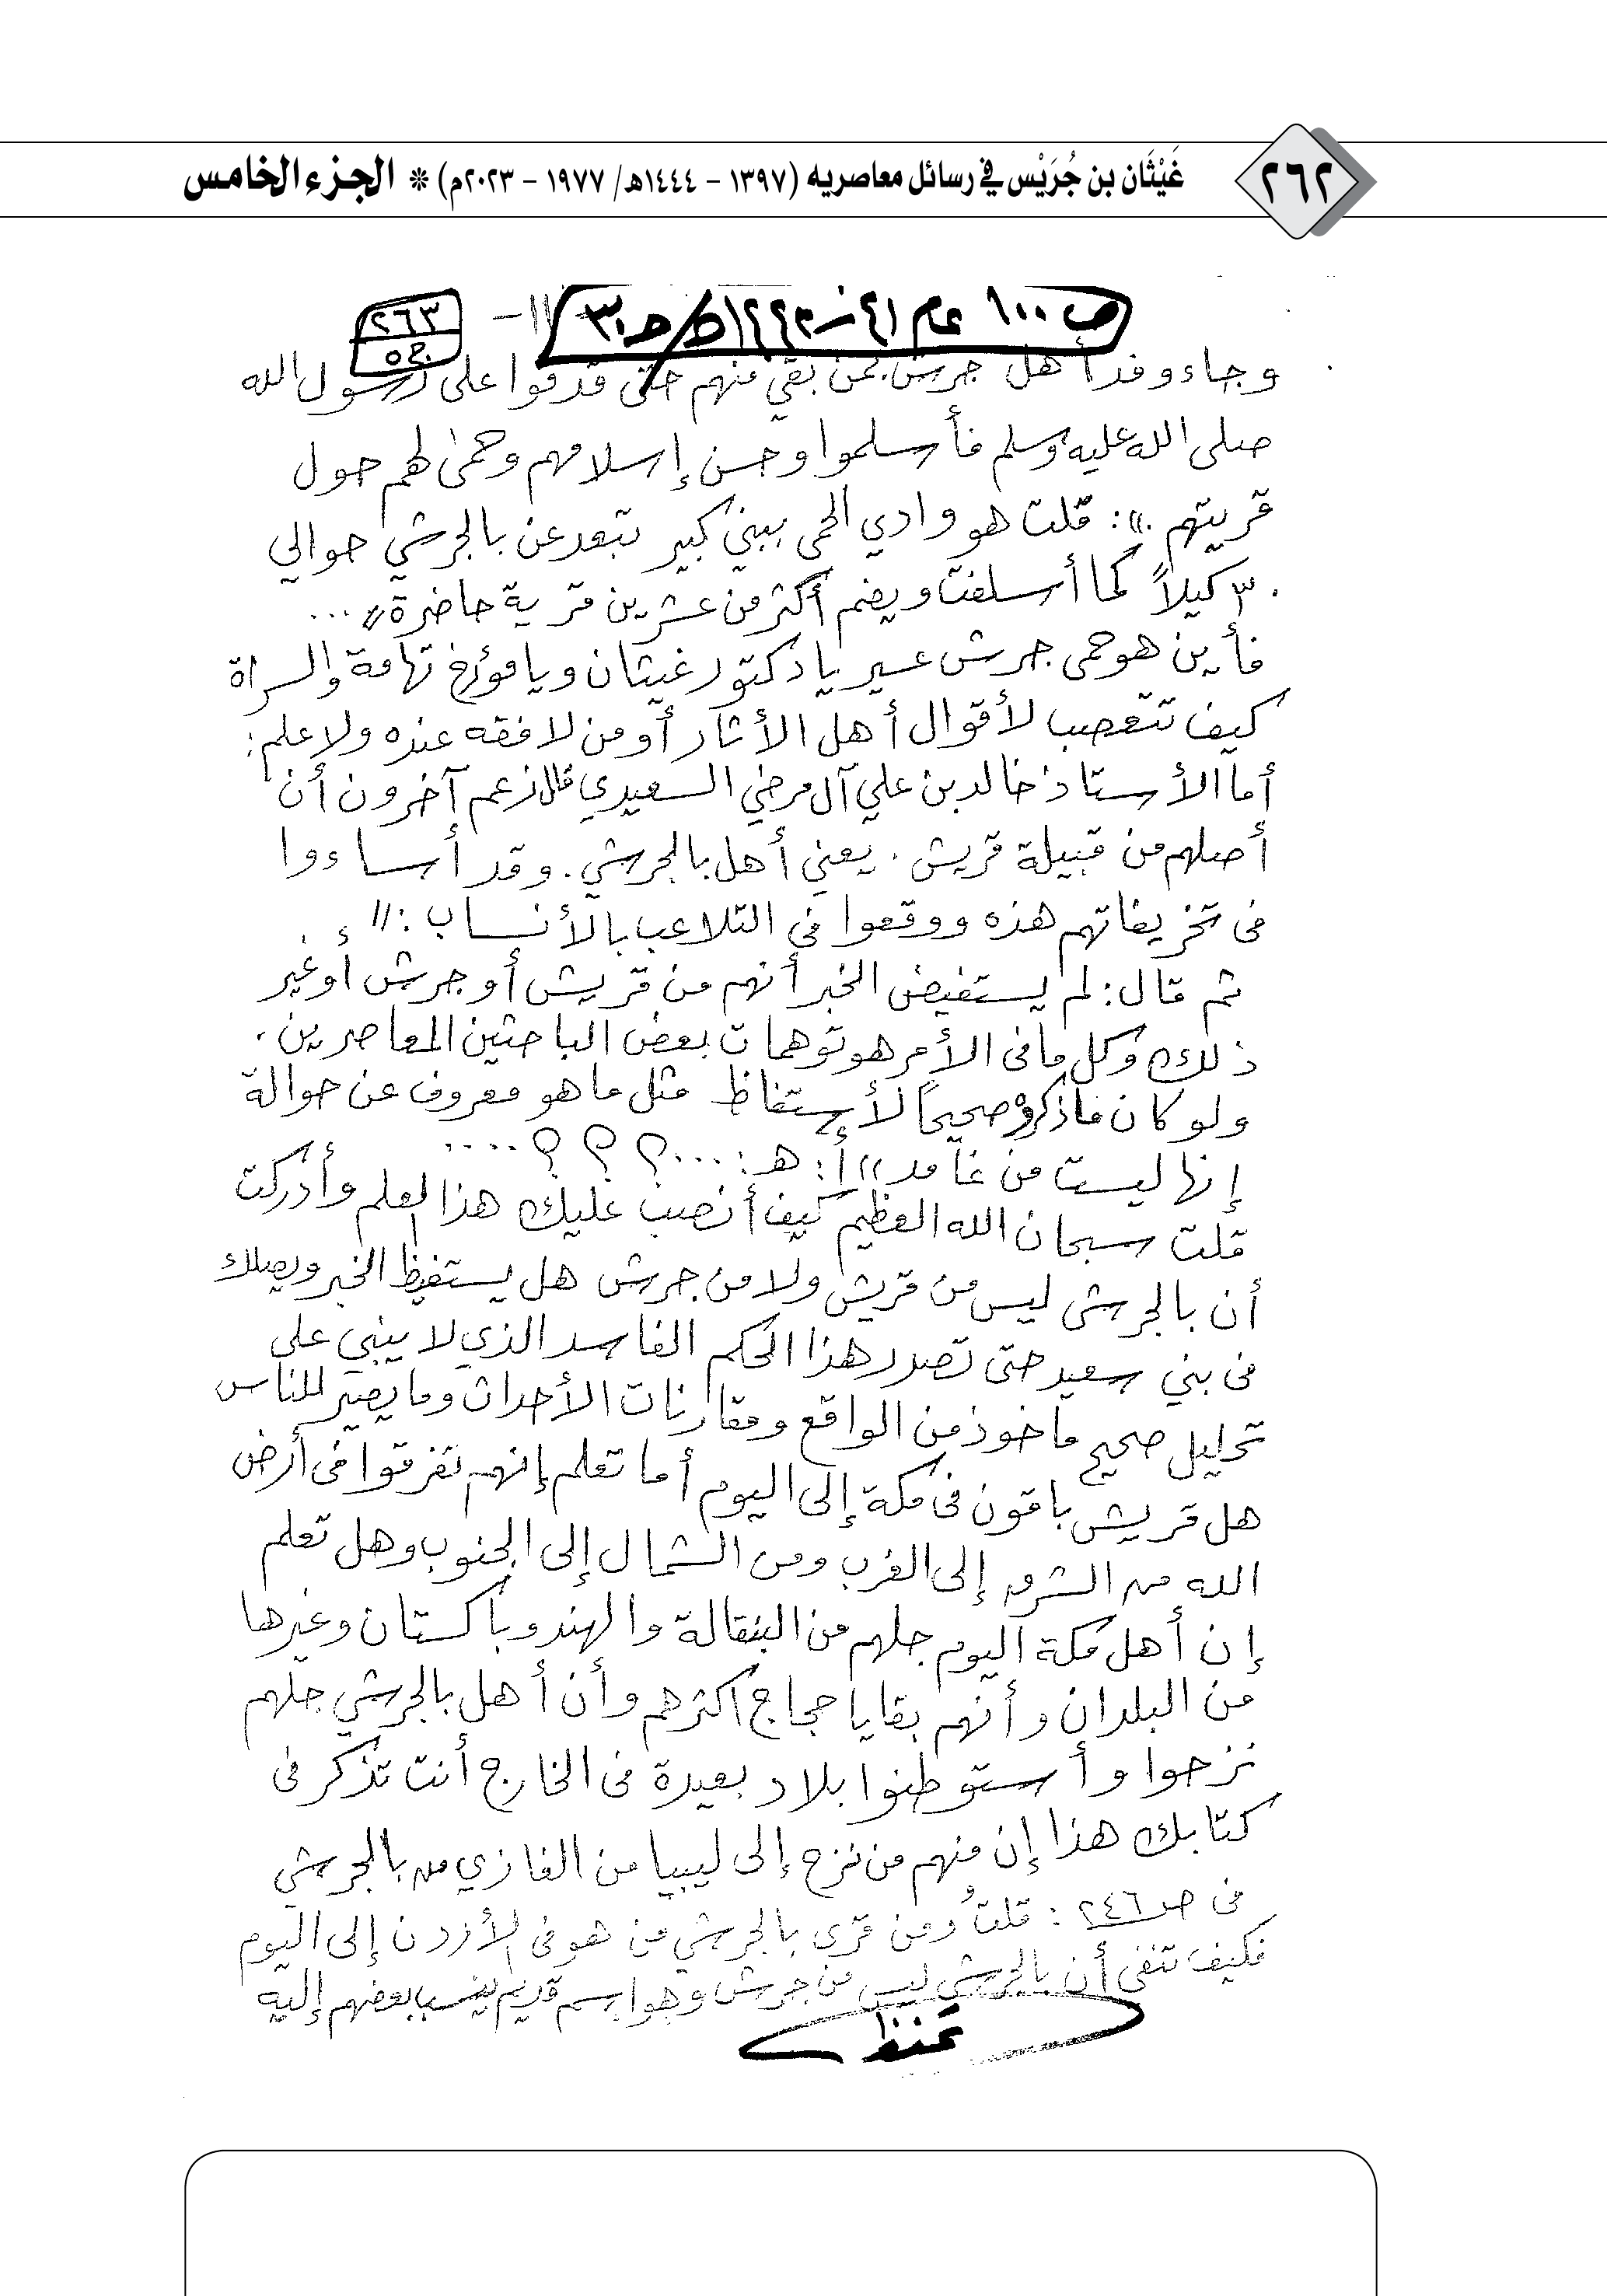 ٢٦٢
غَيْثَان بن جُرَيْس في رسائل معاصريه (١٣٩٧ - ١٤٤٤هـ/ ١٩٧٧ - ٢٠٢٣م) * الجزء الخامس
١٠٠ عام
٢٦٣
ج٥
وجاء وفد أهل جرش بمن بقي منهم حتى قدموا على رسول الله
صلى الله عليه وسلم فأسلموا وحسن إسلامهم وحمى لهم حول
قريتهم .)): قلت هو وادي الحمى ببني كبير تبعد عن بالجرشي حوالي
٣٠ كيلاً كما أسلفت ويضم أكثر من عشرين قرية حاضرة)) ...
فأين هو حمى جرش عسير يا دكتور غيثان ويا مؤرخ تهامة والسراة
كيف تتعصب لأقوال أهل الأثار أو من لا فقه عنده ولا علم:
أما الأستاذ خالد بن علي آل مرضي السعيدي قال زعم آخرون أن
أصلهم من قبيلة قريش . يعني أهل بالجرشي . وقد أساءوا
في تخريفاتهم هذه ووقعوا في التلاعب بالأنساب : ))
ثم قال: لم يستفيض الخبر أنهم من قريش أو جرش أو غير
ذلك وكل ما في الأمر هو توهمات بعض الباحثين المعاصرين .
ولو كان ما ذكروه صحيحاً لأستفاظ مثل ما هو معروف عن حوالة
إنها ليست من غامد)) أ: هـ: ...؟ ؟ ؟ ....
قلت سبحان الله العظيم كيف أنصب عليك هذا العلم وأدركت
أن بالجرشي ليس من قريش ولا من جرش هل يستفيظ الخبر ويصلك
في بني سعيد حتى تصدر هذا الحكم الفاسد الذي لا يبني على
تحليل صحيح ماخوذ من الواقع ومقارنات الأحداث وما يصير للناس
هل قريش باقون في مكة إلى اليوم أما تعلم إنهم تفرقوا في أرض
الله من الشرق إلى الغرب ومن الشمال إلى الجنوب وهل تعلم
إن أهل مكة اليوم جلهم من البنقالة والهند وباكستان وغيرها
من البلدان وأنهم بقايا حجاج اكثرهم وأن أهل بالجرشي جلهم
نزحوا وأستوطنوا بلاد بعيدة في الخارج أنت تذكر في
كتابك هذا إن منهم من نزح إلى ليبيا من الغازي من بالجرشي
في صـ ٢٤٦ : قلتُ ومن قرى بالجرشي من هو في الأزدن إلى اليوم
فكيف تنفي أن بالجرشي ليس من جرش وهو اسم قديم ينسب بعضهم إليه